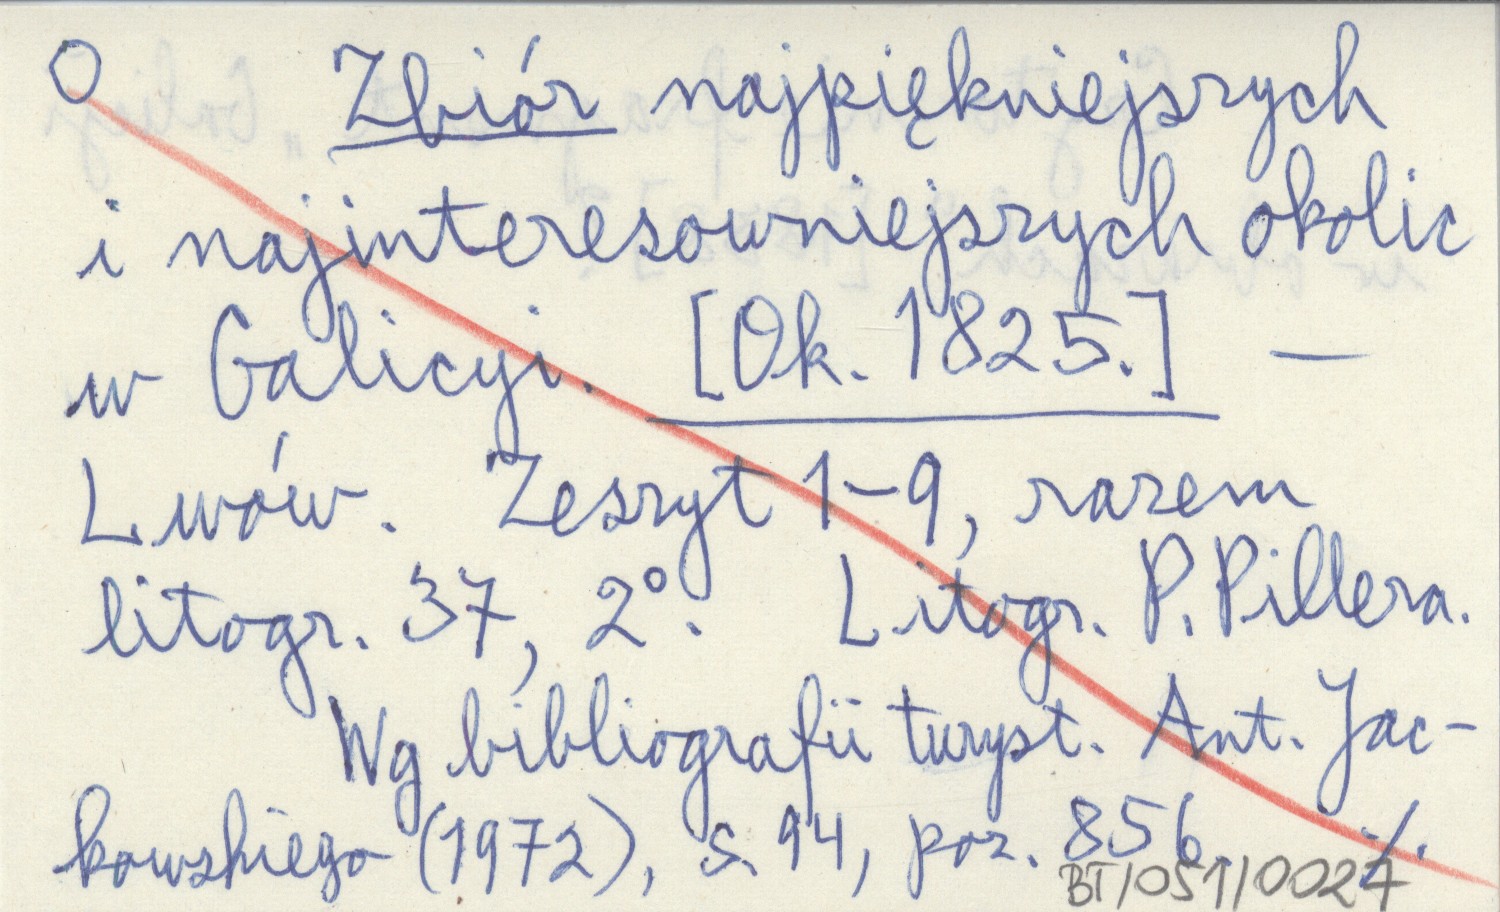 O Zbiór najpiękniejszych
i najinteresowniejszych okolic
w Galicyi. [Ok. 1825.] —
Lwów. Zeszyt 1-9, razem
litogr. 37, 2°. Litogr. P. Pillera.
Wg bibliografii turyst. Ant. Jac-
kowskiego (1972), s. 94, poz. 856. ./.
BT/051/0027